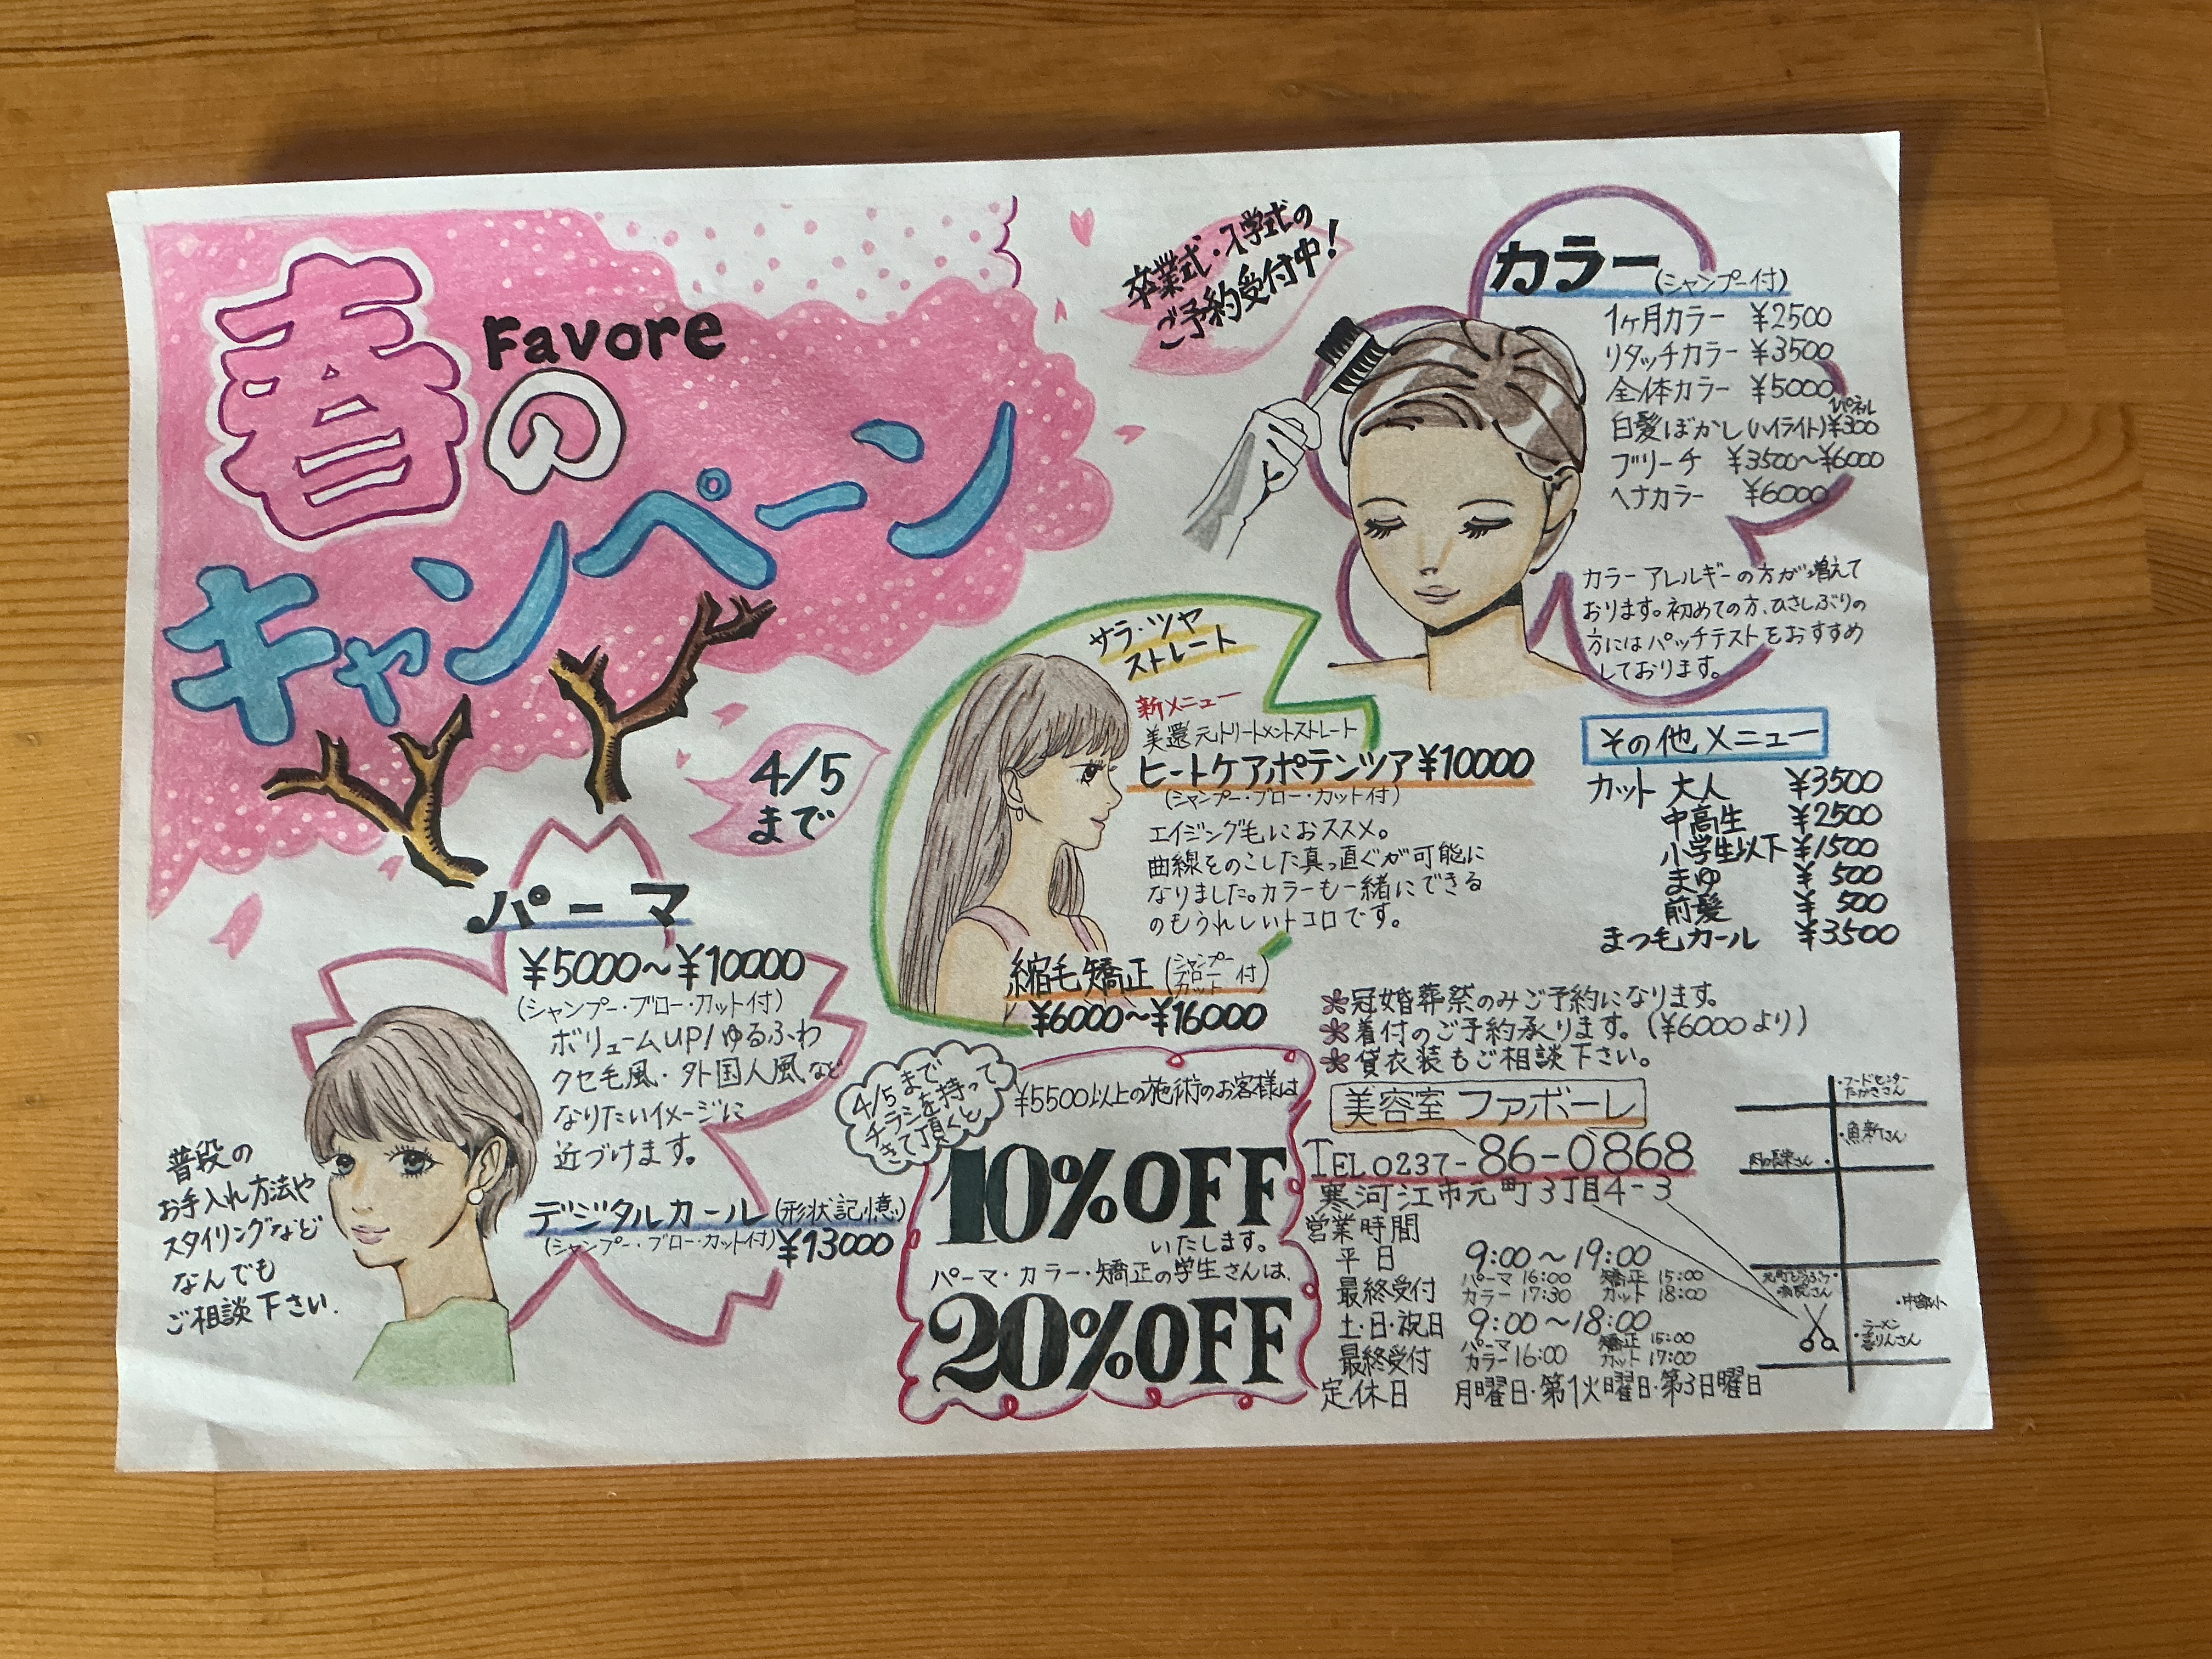 Favore
春の
キャンペーン
4/5
まで
卒業式・入学式の
ご予約受付中!
カラー(シャンプー付)
1ヶ月カラー ¥2500
リタッチカラー ¥3500
全体カラー ¥5000
1パネル
白髪ぼかし(ハイライト)¥300
ブリーチ ¥3500〜¥6000
ヘナカラー ¥6000
カラーアレルギーの方が増えて
おります。初めての方、ひさしぶりの
方にはパッチテストをおすすめ
しております。
サラ・ツヤ
ストレート
新メニュー
美還元トリートメントストレート
ヒートケアポテンツア¥10000
(シャンプー・ブロー・カット付)
エイジング毛におススメ。
曲線をのこした真っ直ぐが可能に
なりました。カラーも一緒にできる
のもうれしいトコロです。
縮毛矯正(シャンプー ブロー カット付)
¥6000〜¥16000
その他メニュー
カット 大人 ¥3500
中高生 ¥2500
小学生以下 ¥1500
まゆ ¥500
前髪 ¥500
まつ毛カール ¥3500
パーマ
¥5000〜¥10000
(シャンプー・ブロー・カット付)
ボリュームUP/ゆるふわ
クセ毛風・外国人風など
なりたいイメージに
近づけます。
デジタルカール(形状記憶)
(シャンプー・ブロー・カット付)¥13000
普段の
お手入れ方法や
スタイリングなど
なんでも
ご相談下さい.
4/5まで
チラシを持って
きて頂くと
¥5500以上の施術のお客様は
10%OFF
いたします。
パーマ・カラー・矯正の学生さんは、
20%OFF
冠婚葬祭のみご予約になります。
着付のご予約承ります。(¥6000より)
貸衣装もご相談下さい。
美容室 ファボーレ
TEL 0237-86-0868
寒河江市元町3丁目4-3
営業時間
平日 9:00〜19:00
最終受付 パーマ16:00 矯正15:00
カラー17:30 カット18:00
土・日・祝日 9:00〜18:00
最終受付 パーマ カラー16:00 矯正15:00
カット17:00
定休日 月曜日・第1火曜日・第3日曜日
・フードセンター
たかきさん
・魚新さん
・中部小
・ラーメン